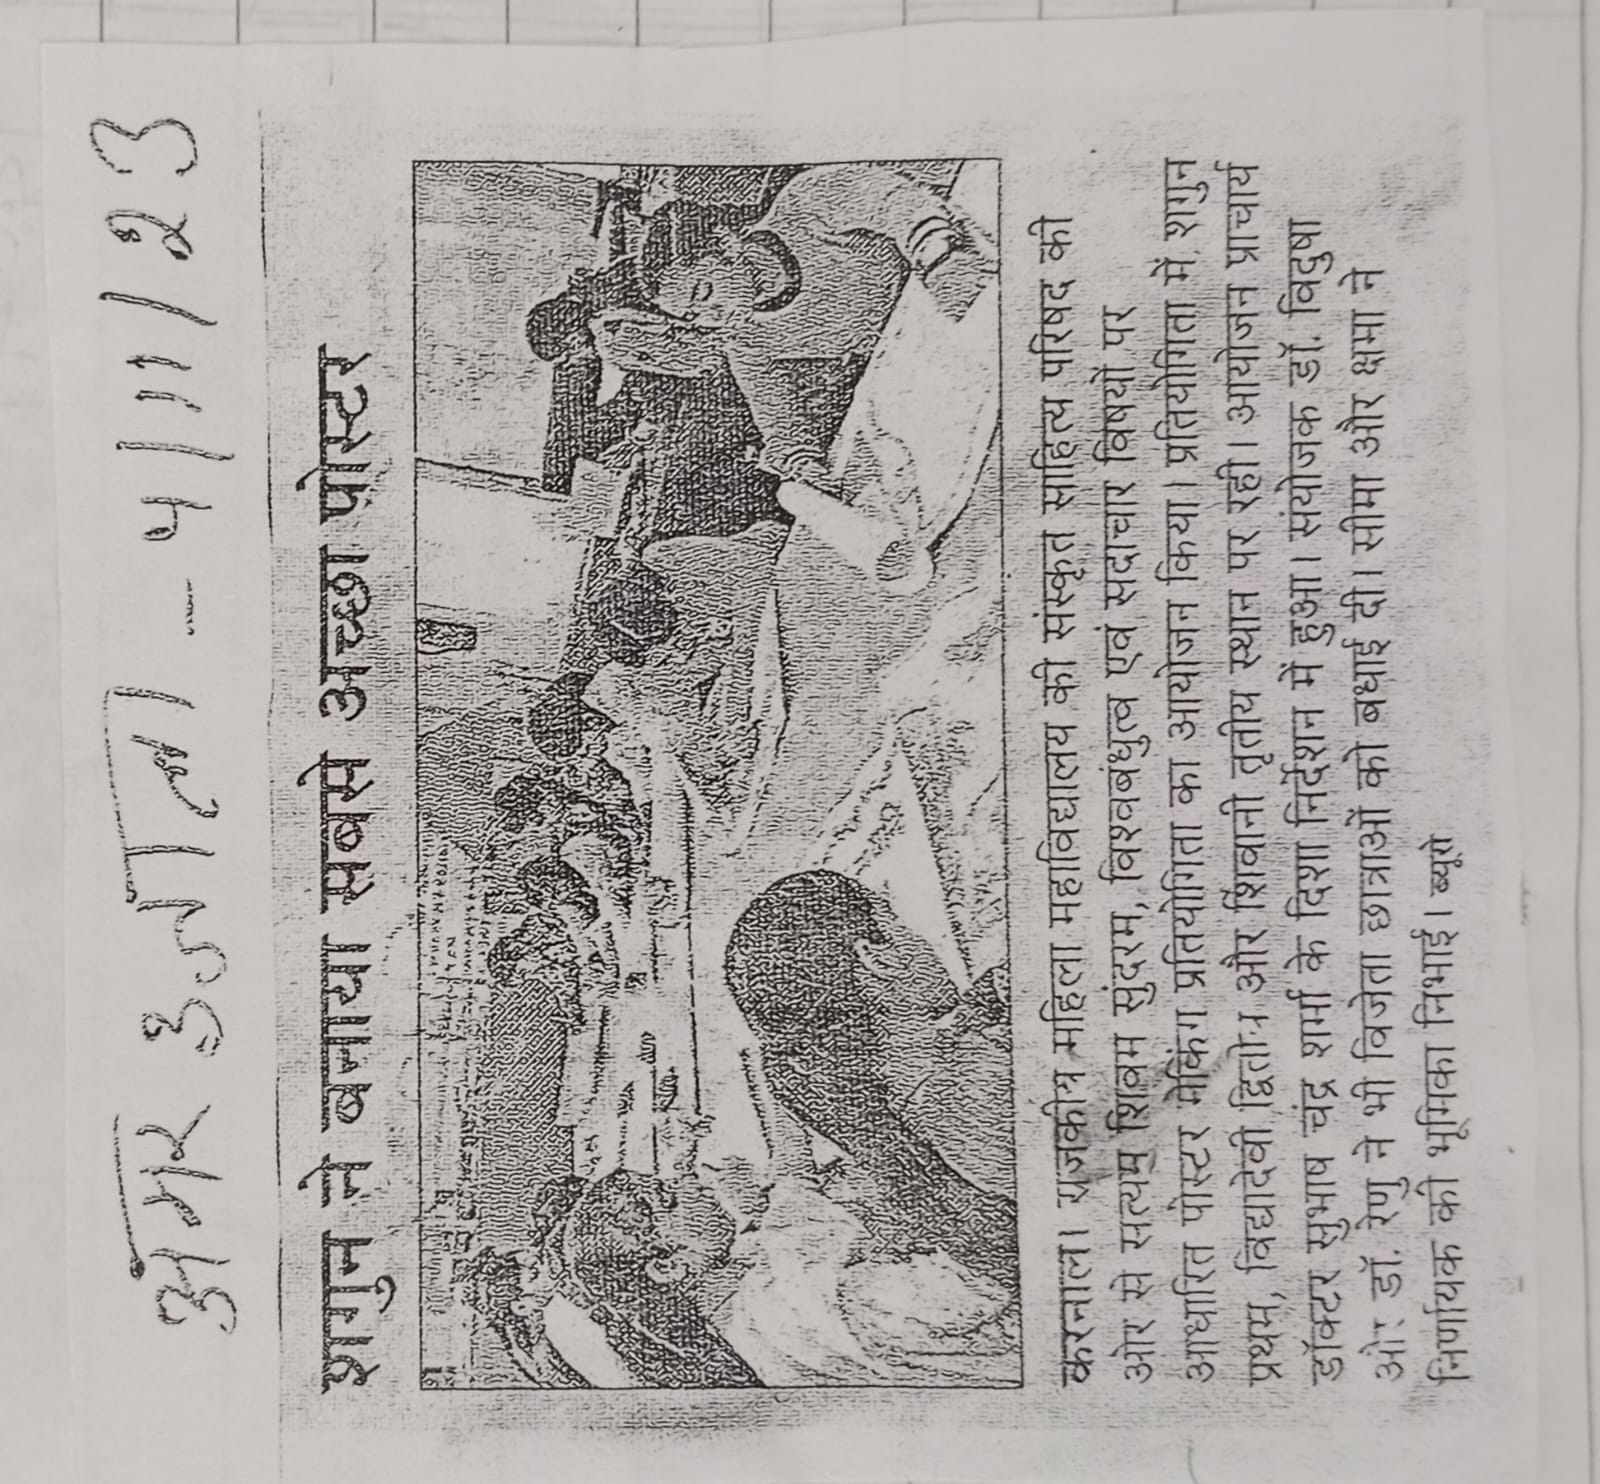 अमर उजाला - 4/11/23
शगुन ने बनाया सबसे अच्छा पोस्टर
करनाल। राजकीय महिला महाविद्यालय की संस्कृत साहित्य परिषद की
ओर से सत्यम शिवम सुंदरम, विश्वबंधुत्व एवं सदाचार विषयों पर
आधारित पोस्टर मेकिंग प्रतियोगिता का आयोजन किया। प्रतियोगिता में शगुन
प्रथम, विद्यादेवी द्वितीय और शिवानी तृतीय स्थान पर रही। आयोजन प्राचार्य
डॉक्टर सुभाष चंद्र शर्मा के दिशा निर्देशन में हुआ। संयोजक डॉ. विदुषा
ओर डॉ. रेणु ने भी विजेता छात्राओं को बधाई दी। सीमा और क्षमा ने
निर्णायक की भूमिका निभाई। ब्यूरो